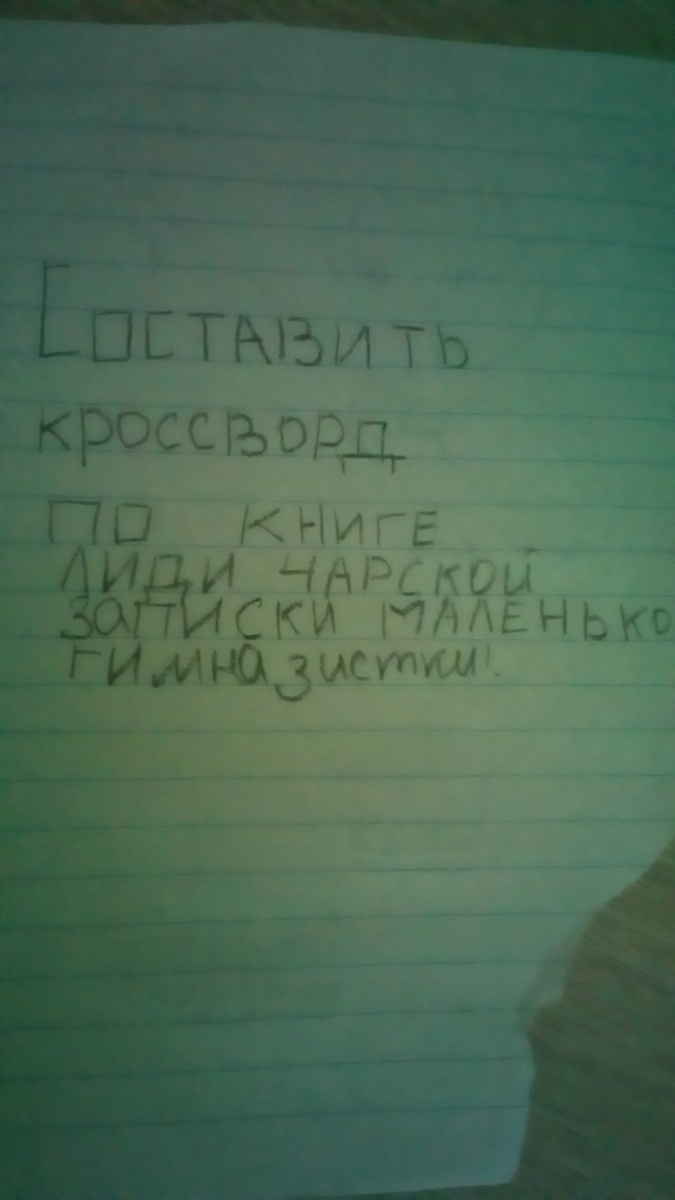 Составить
кроссворд
по книге
Лиди Чарской
записки маленько
гимназистки!